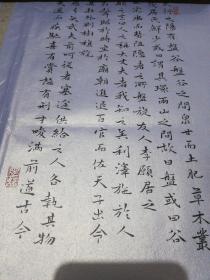 之陽有盤谷盤谷之間泉甘而土肥草木叢
居民鮮少或曰謂其環兩山之間故曰盤或曰谷
宅幽而勢阻隱者之所盤旋友人李愿居之
之言曰人之稱大丈夫者我知之矣利澤施於人
昭於時坐於廟朝進退百官而佐天子出令
外則樹旗旄
矢武夫前呵從者塞途供給之人各執其物
疾馳喜有賞怒有刑才畯滿前道古今